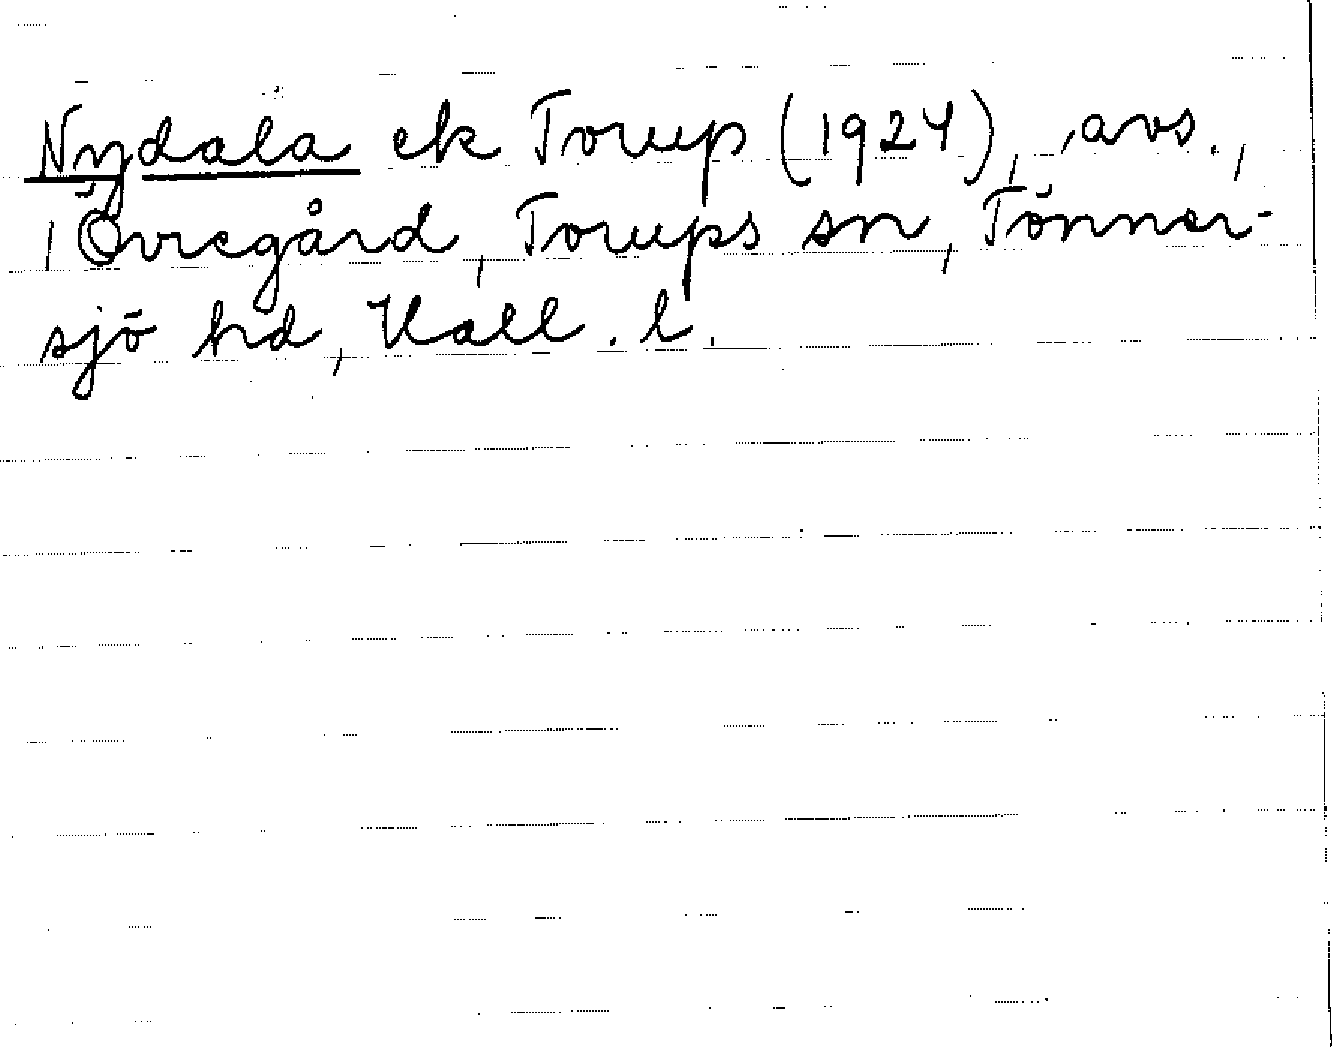 Nydala ek Torup (1924), avs.,
1 Övregård, Torups sn, Tönner-
sjö hd, Hall. l.